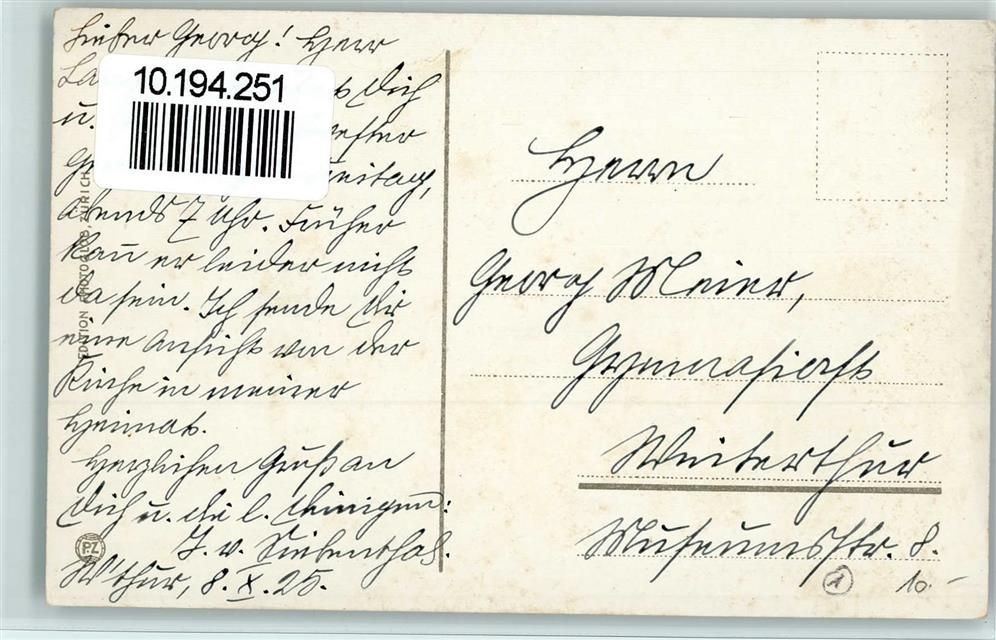 Lieber Georg! Herr
La
10.194.251
Dich
u.
Freitag,
abends 7 Uhr. Früher
kañ er leider nicht
da sein. Ich sende Dir
eine Ansicht von der
Kirche in meiner
Heimat.
Herzlichen Gruß an
Dich u. die l. Deinigen:
J. v. Siebenthal.
W'thur, 8. X. 25.
EDITION PHOTOGLOB, ZÜRICH
PZ
Herrn
Georg Meier,
Gymnasiast
Winterthur
Museumsstr. 8.
1
10.-